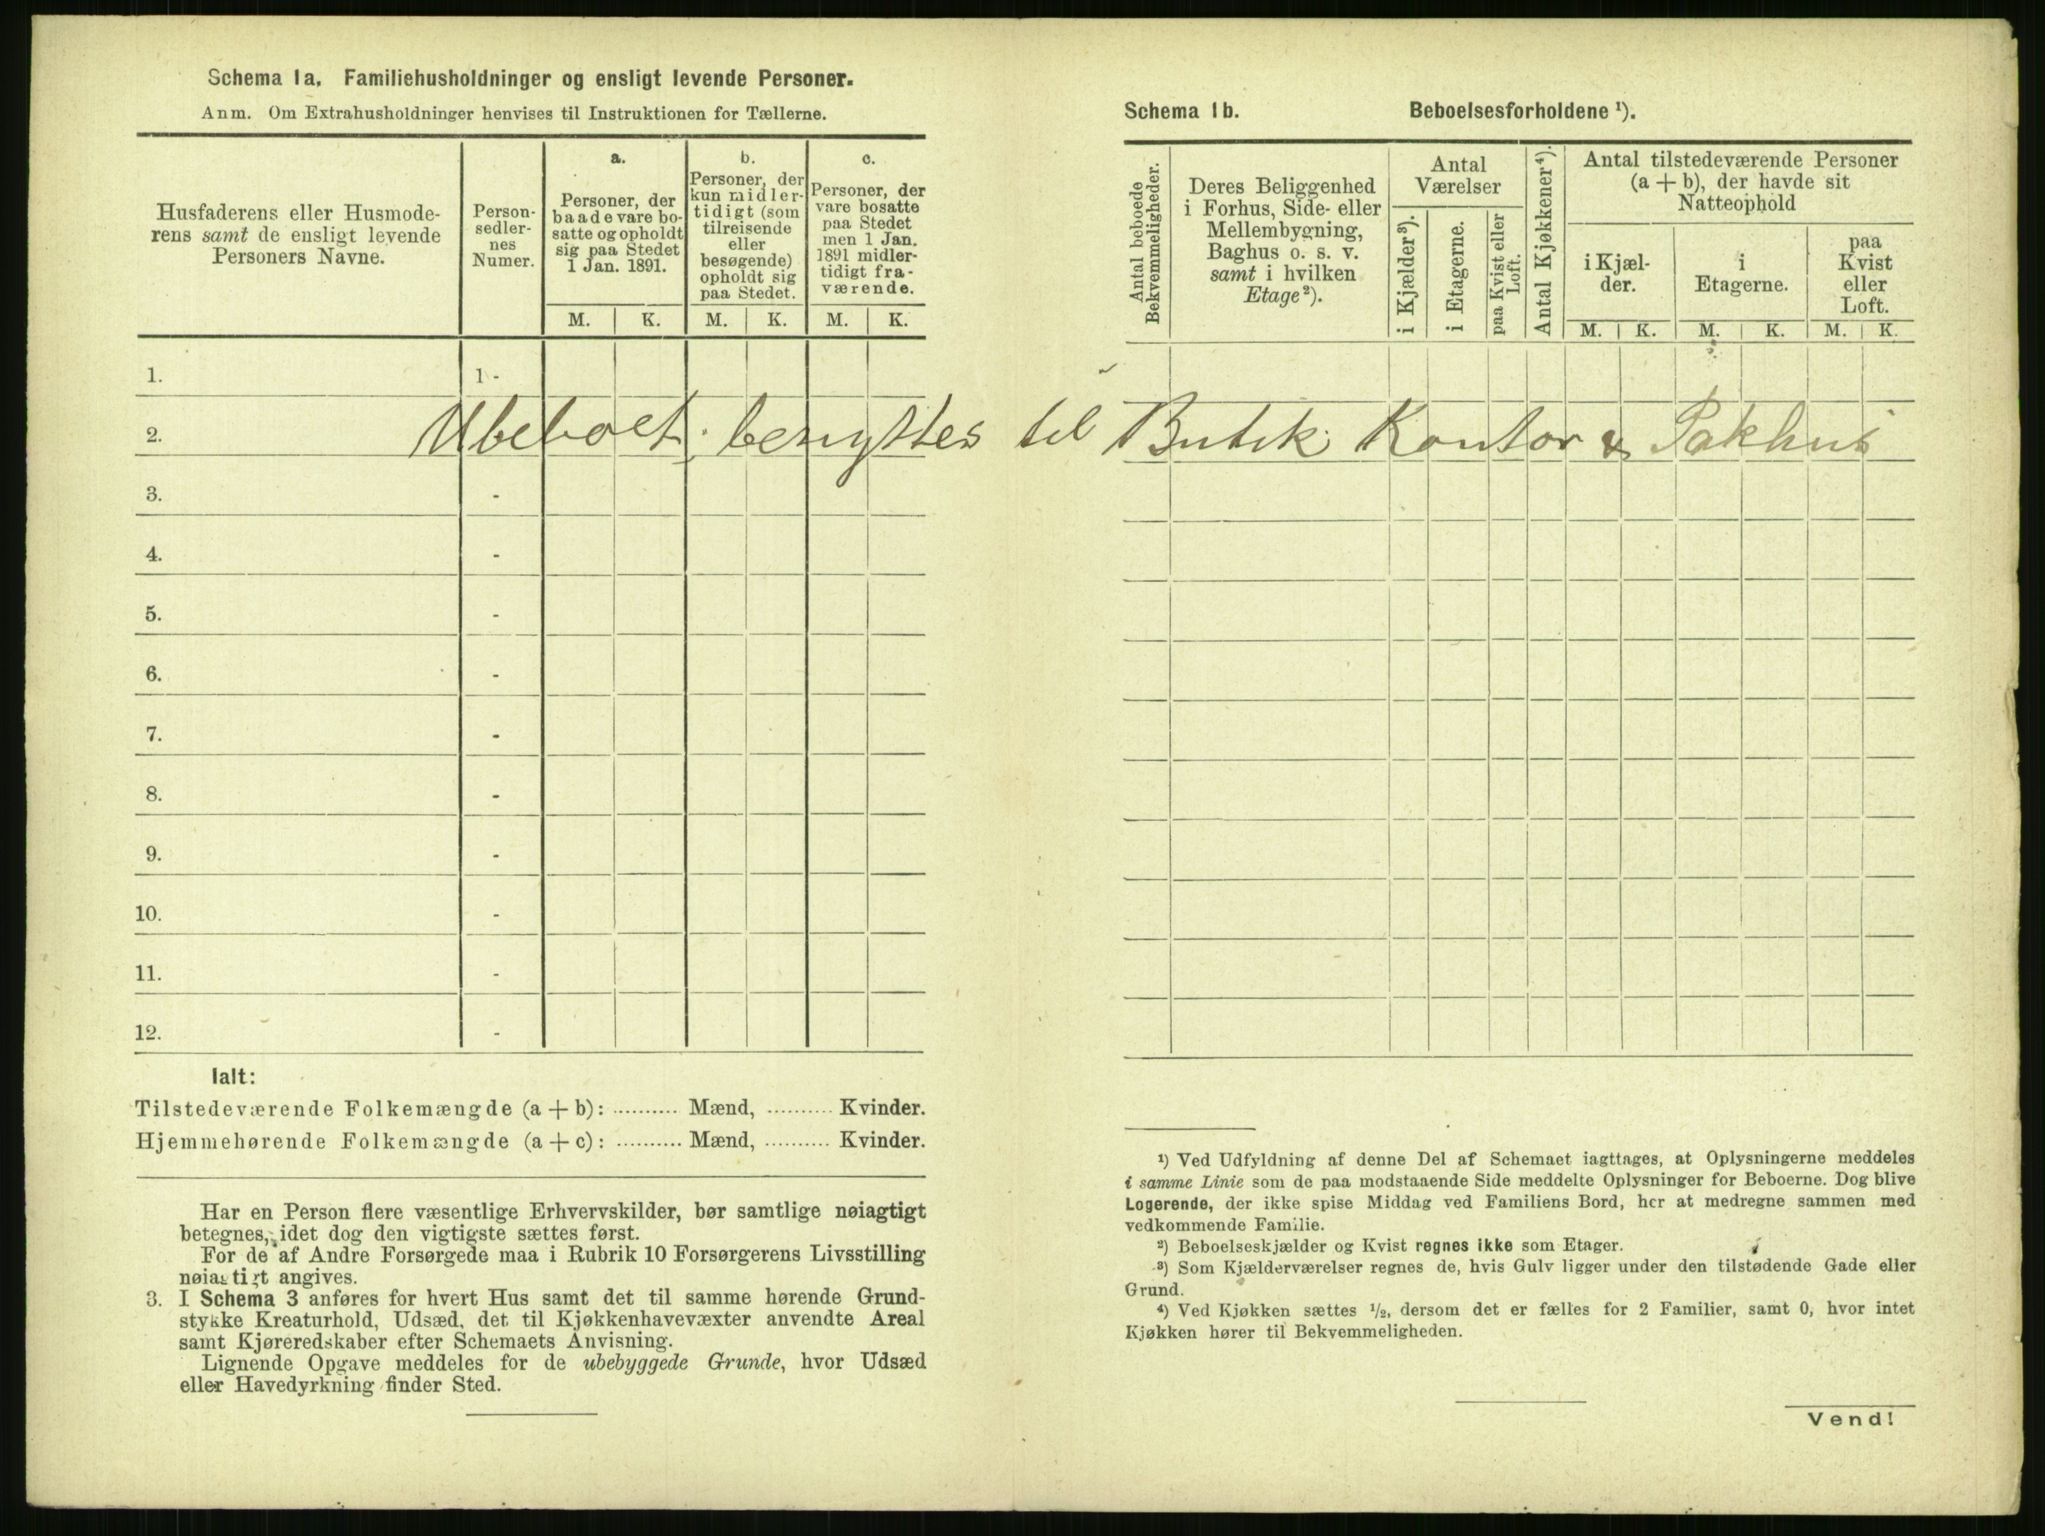 Schema 1a. Familiehusholdninger og ensligt levende Personer.
Anm. Om Extrahusholdninger henvises til Instruktionen for Tællerne.
Husfaderens eller Husmode-
rens samt de ensligt levende
Personers Navne.
Person-
sedler-
nes
Numer.
a.
Personer, der
baade vare bo-
satte og opholdt
sig paa Stedet
1 Jan. 1891.
b.
Personer, der
kun midler-
tidigt (som
tilreisende
eller
besøgende)
opholdt sig
paa Stedet.
c.
Personer, der
vare bosatte
paa Stedet
men 1 Jan.
1891 midler-
tidigt fra-
værende.
M. K. M. K. M. K.
1. 1 -
2.
3. -
4. -
5. -
6. -
7. -
8. -
9. -
10. -
11. -
12. -
Ubeboet; benyttes til Butik Kontor & Pakhus
Ialt:
Tilstedeværende Folkemængde (a + b): .......... Mænd, .......... Kvinder.
Hjemmehørende Folkemængde (a + c): .......... Mænd, .......... Kvinder.
Har en Person flere væsentlige Erhvervskilder, bør samtlige nøiagtigt
betegnes, idet dog den vigtigste sættes først.
For de af Andre Forsørgede maa i Rubrik 10 Forsørgerens Livsstilling
nøiagtigt angives.
3. I Schema 3 anføres for hvert Hus samt det til samme hørende Grund-
stykke Kreaturhold, Udsæd, det til Kjøkkenhavevæxter anvendte Areal
samt Kjøreredskaber efter Schemaets Anvisning.
Lignende Opgave meddeles for de ubebyggede Grunde, hvor Udsæd
eller Havedyrkning finder Sted.
Schema 1b. Beboelsesforholdene ¹).
Antal beboede
Bekvemmeligheder.
Deres Beliggenhed
i Forhus, Side- eller
Mellembygning,
Baghus o. s. v.
samt i hvilken
Etage²).
Antal
Værelser
i Kjælder³).
i Etagerne.
paa Kvist eller
Loft.
Antal Kjøkkener⁴).
Antal tilstedeværende Personer
(a + b), der havde sit
Natteophold
i Kjæl-
der.
i
Etagerne.
paa
Kvist
eller
Loft.
M. K. M. K. M. K.
¹) Ved Udfyldning af denne Del af Schemaet iagttages, at Oplysningerne meddeles
i samme Linie som de paa modstaaende Side meddelte Oplysninger for Beboerne. Dog blive
Logerende, der ikke spise Middag ved Familiens Bord, her at medregne sammen med
vedkommende Familie.
²) Beboelseskjælder og Kvist regnes ikke som Etager.
³) Som Kjælderværelser regnes de, hvis Gulv ligger under den tilstødende Gade eller
Grund.
⁴) Ved Kjøkken sættes ½, dersom det er fælles for 2 Familier, samt 0, hvor intet
Kjøkken hører til Bekvemmeligheden.
Vend!